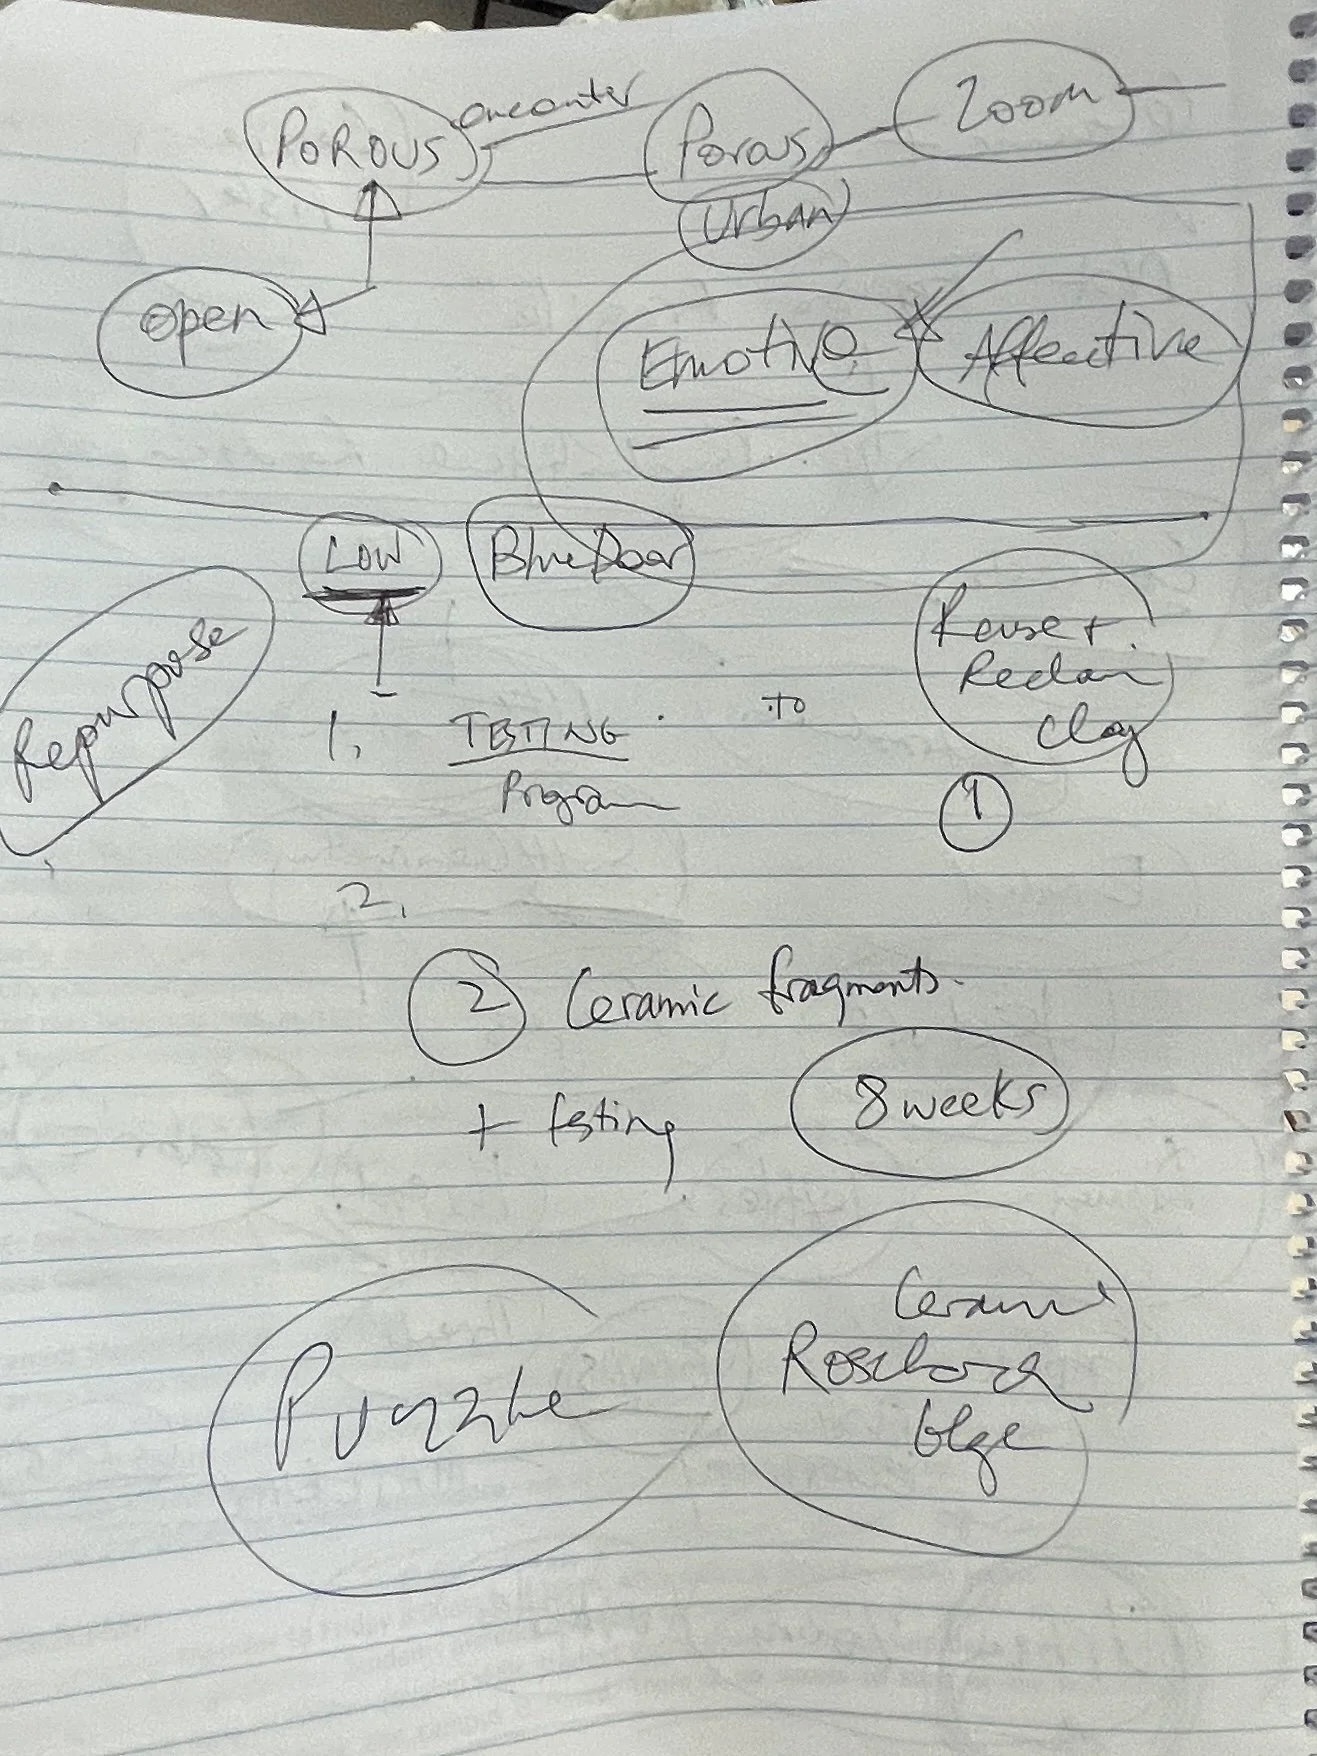 POROUS encounter
Porous
Zoom
Urban
open
Emotive
Affective
Low
Blue Door
Repurpose
1. TESTING to
Program
Reuse +
Reclaim
Clay
1
2.
2 Ceramic fragments.
+ testing
8 weeks
Puzzle
Ceramic